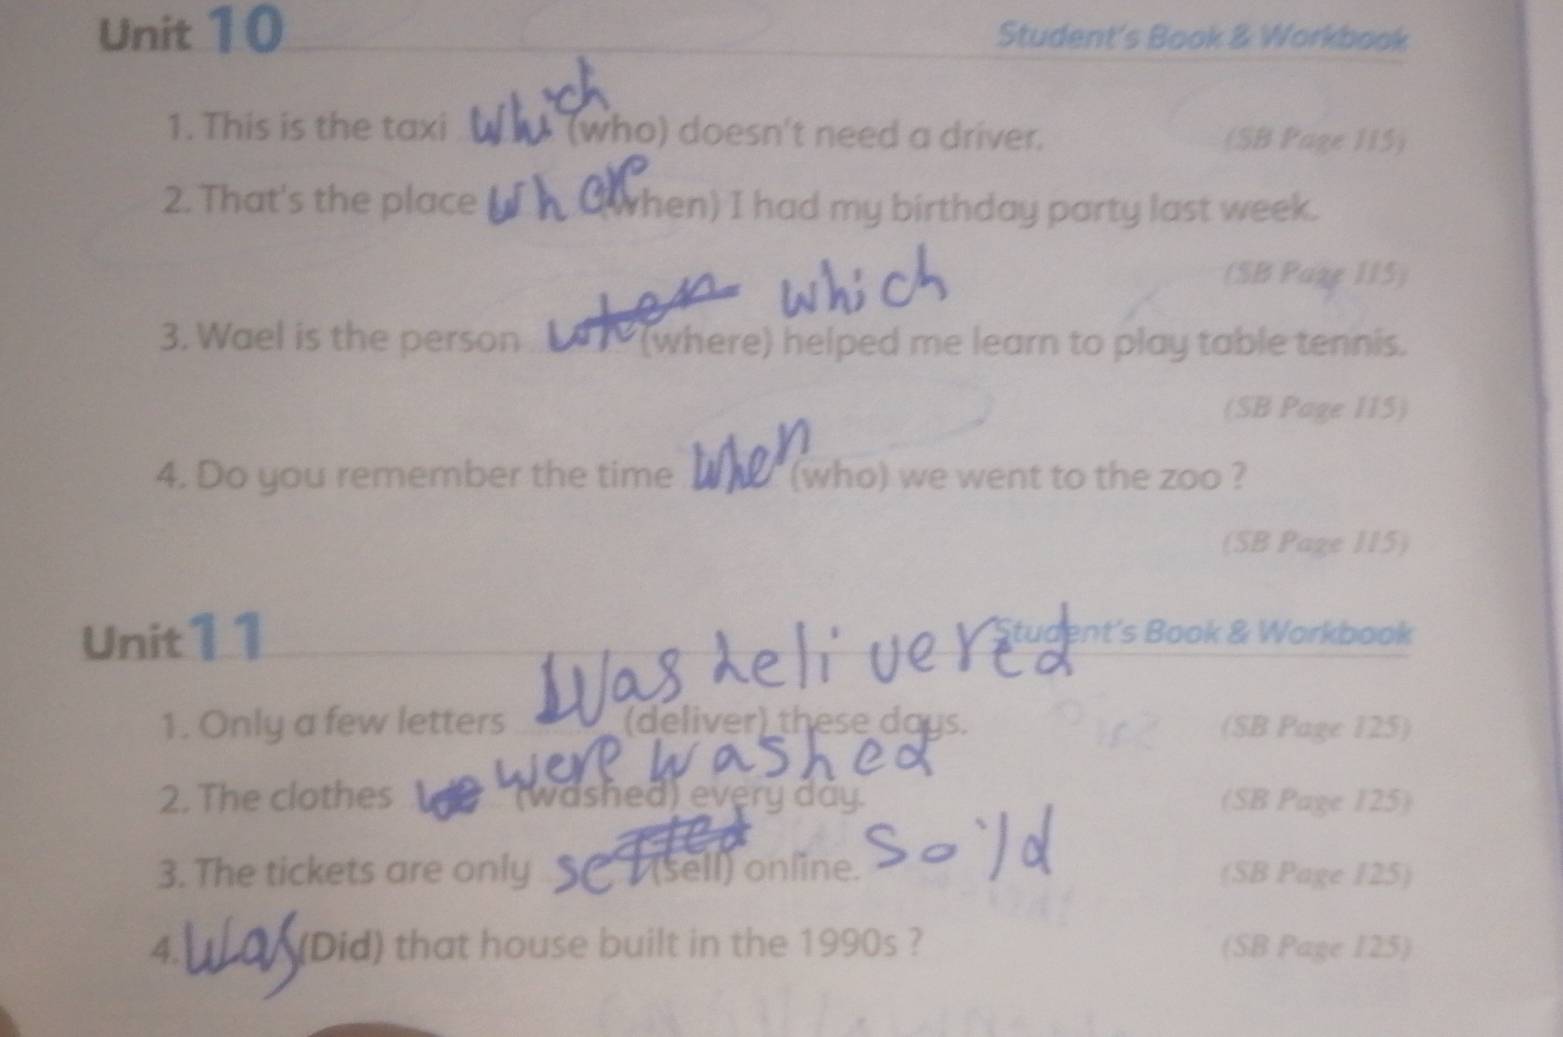 Unit 10 Student's Book & Workbook
1. This is the taxi which (who) doesn't need a driver. (SB Page 115)
2. That's the place where (when) I had my birthday party last week.
(SB Page 115)
which
3. Wael is the person when (where) helped me learn to play table tennis.
(SB Page 115)
4. Do you remember the time when (who) we went to the zoo ?
(SB Page 115)
Unit 11 Student's Book & Workbook
was delivered
1. Only a few letters (deliver) these days. (SB Page 125)
were washed
2. The clothes (washed) every day. (SB Page 125)
3. The tickets are only (sell) online. sold (SB Page 125)
4. Was (Did) that house built in the 1990s ? (SB Page 125)